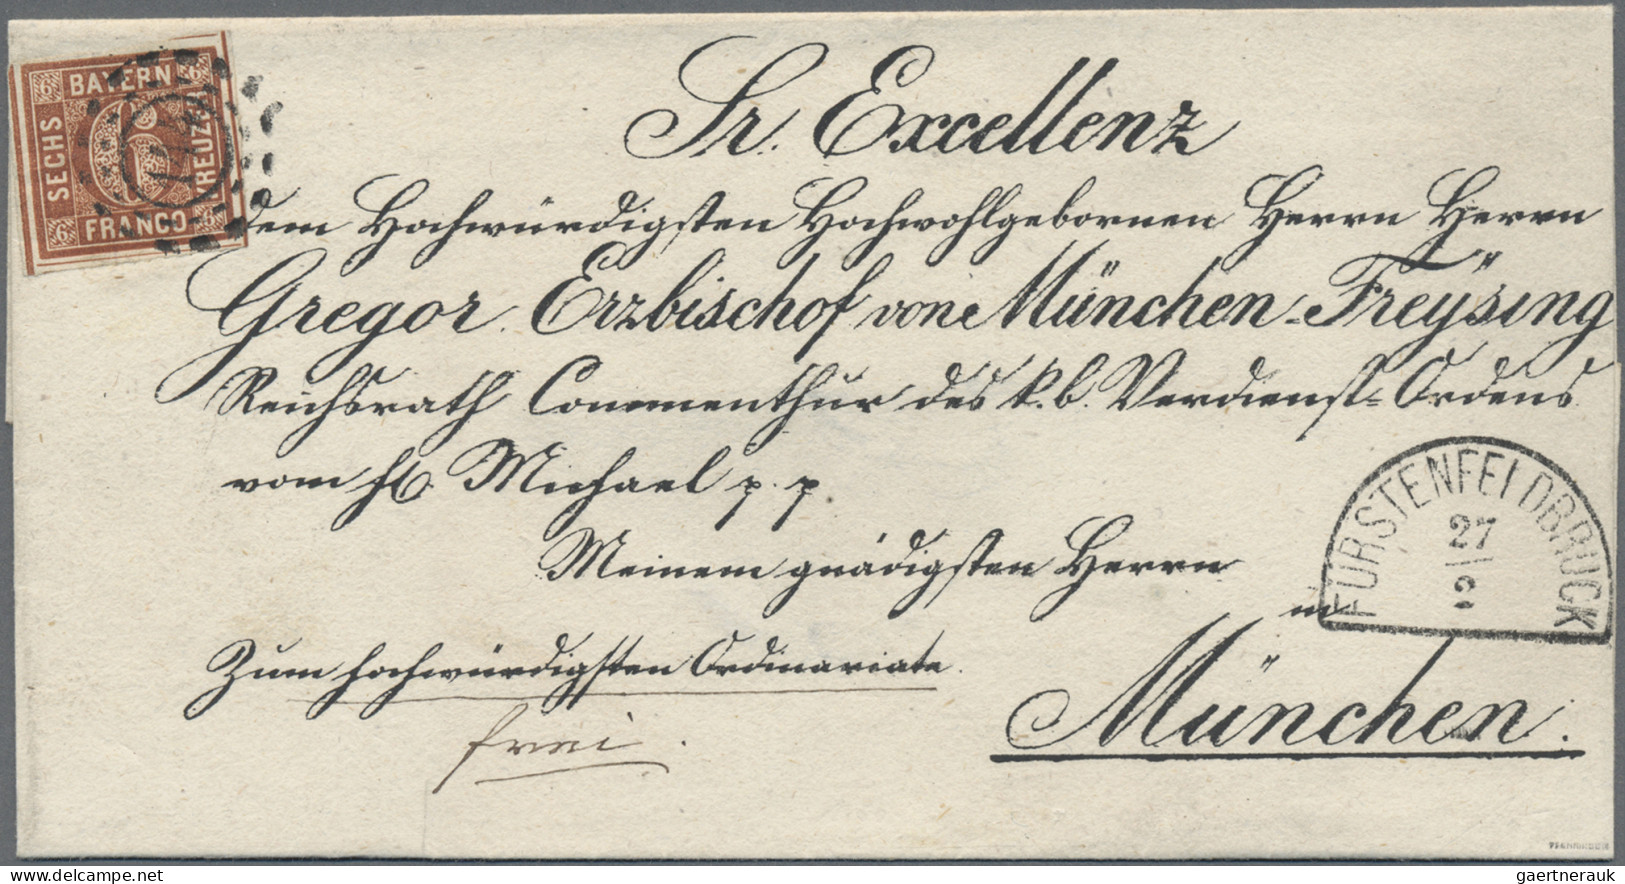 BAYERN
SECHS
KREUZER
FRANCO
6
6
6
6
6
Sr. Excellenz
dem Hochwürdigsten Hochwohlgebornen Herrn Herrn
Gregor Erzbischof von München-Freÿsing
Reichsrath Commenthur des k. b. Verdienst-Ordens
vom hl. Michael p. p
Meinem gnädigsten Herrn
in
Zum hochwürdigsten Ordinariate.
frei.
München.
FÜRSTENFELDBRUCK
27
2
gaertnerauk